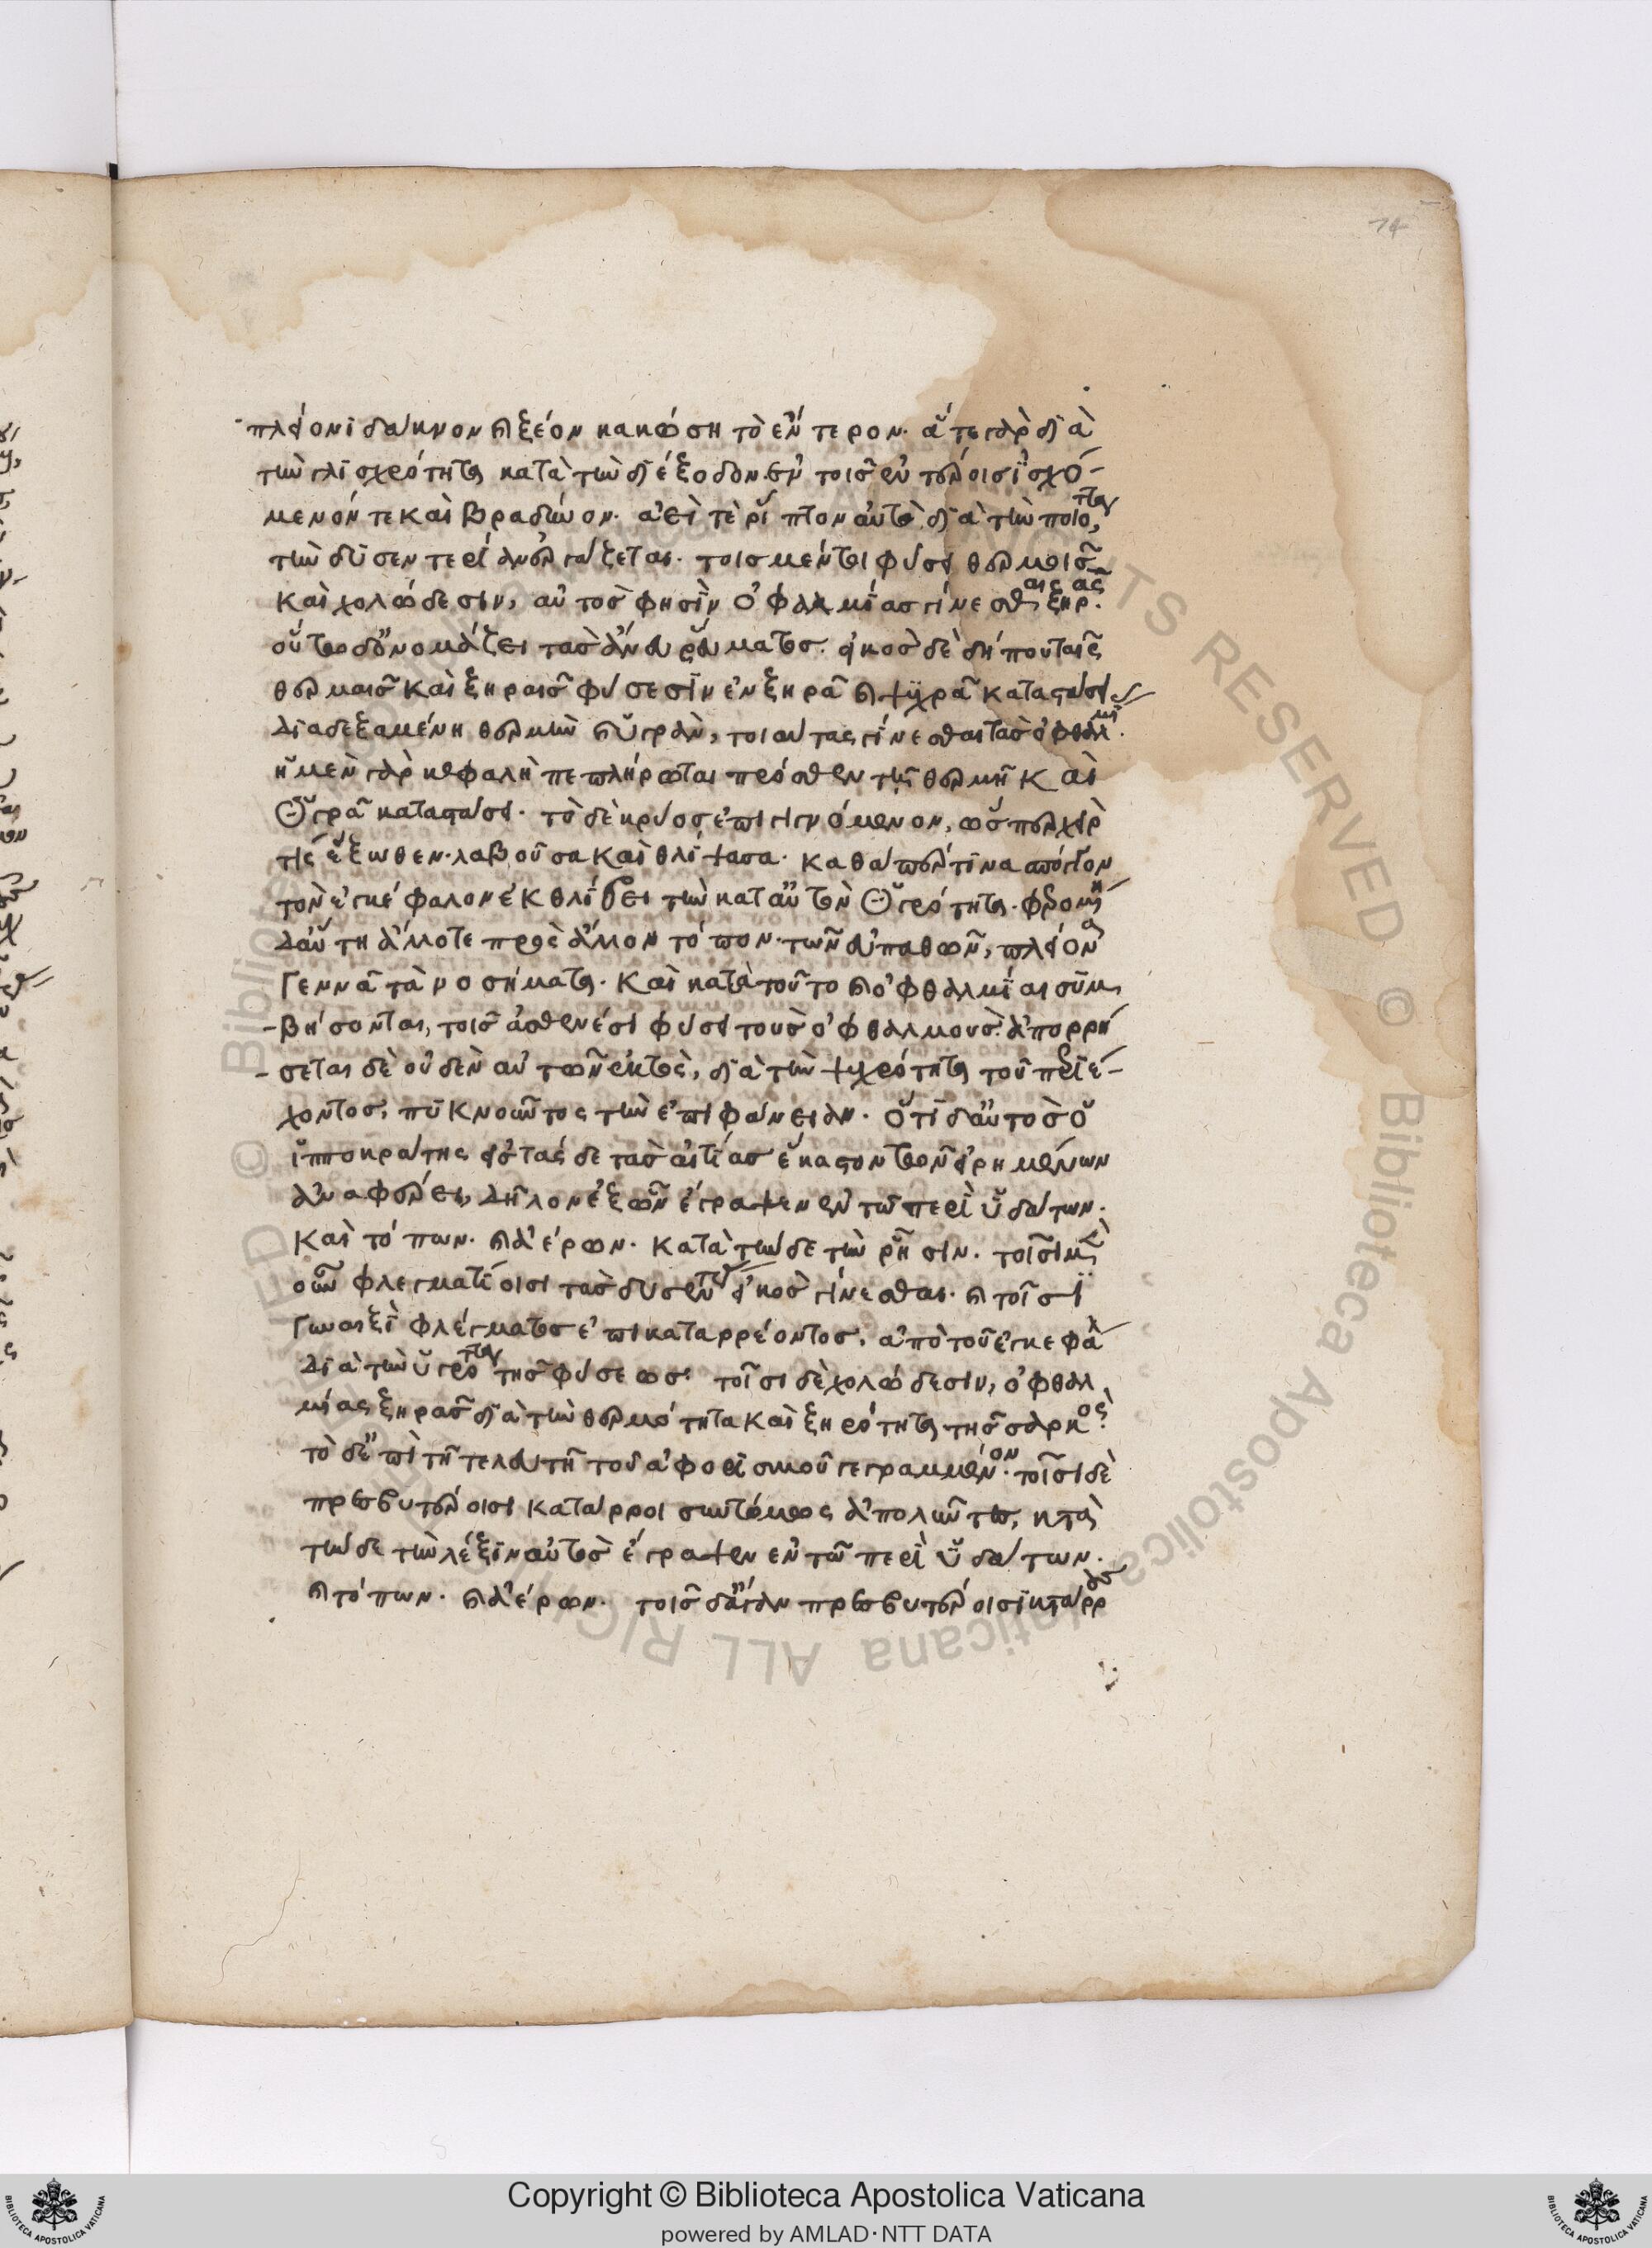 74
πλέονι δάκνον καὶ ξέον κακώσῃ τὸ ἔντερον. ἅτε γὰρ διὰ
τὴν γλισχρότητα κατὰ τὴν διέξοδον ἐν τοῖς ἐντέροις ἰσχό-
μενόν τε καὶ βραδύνον. διὰ τὴν ποιότητα
τὴν δυσεντερίαν ἐργάζεται. τοῖς μέντοι φύσει θερμοῖς
καὶ χολώδεσιν, αὐτός φησιν ὀφθαλμίας γίνεσθαι ξηράς.
οὕτω δ' ὀνομάζει τὰς ἄνευ ῥεύματος. εἰκὸς δὲ δήπου ταῖς
θερμαῖς καὶ ξηραῖς φύσεσιν ἐν ξηρᾷ καὶ ψυχρᾷ καταστάσει
διαδεξαμένη θερμὴν καὶ ὑγράν, τοιαύτας γίνεσθαι τὰς ὀφθαλμί.
ἡ μὲν γὰρ κεφαλὴ πεπλήρωται πρόσθεν τῇ θερμῇ καὶ
ὑγρᾷ καταστάσει. τὸ δὲ κρύος ἐπιγινόμενον, ὥσπερ χείρ
τις ἔξωθεν λαβοῦσα καὶ θλίψασα. καθάπερ τινὰ σπόγγον
τὸν ἐγκέφαλον ἐκθλίβει τὴν κατ' αὐτὸν ὑγρότητα. φερομένη
δ' αὕτη ἄλλοτε πρὸς ἄλλον τόπον τῶν εὐπαθῶν, πλείονα
γεννᾷ τὰ νοσήματα. καὶ κατὰ τοῦτο καὶ ὀφθαλμίαι συμ-
-βήσονται, τοῖς ἀσθενέσι φύσει τοὺς ὀφθαλμούς. ἀπορρή
-σεται δὲ οὐδὲν αὐτῶν ἐκτὸς, διὰ τὴν ψυχρότητα τοῦ περιέ-
χοντος, πυκνοῦντος τὴν ἐπιφάνειαν. ὅτι δ' αὐτὸς ὁ
ἱπποκράτης εἰς τάσδε τὰς αἰτίας ἕκαστον τῶν εἰρημένων
ἀναφέρει, δῆλον ἐξ ὧν ἔγραψεν ἐν τῷ περὶ ὑδάτων.
καὶ τόπων. καὶ ἀέρων. κατὰ τήνδε τὴν ῥῆσιν. τοῖσι μὲν
οὖν φλεγματίοισι τὰς δυσεντερίας εἰκὸς γίνεσθαι. καὶ τοῖσι
γυναιξὶ φλέγματος ἐπικαταρρέοντος, ἀπὸ τοῦ ἐγκεφάλ
διὰ τὴν ὑγρότητα τῆς φύσεως. τοῖσι δὲ χολώδεσιν, ὀφθαλ
μίας ξηρὰς διὰ τὴν θερμότητα καὶ ξηρότητα τῆς σαρκός.
τὸ δ' ἐπὶ τῇ τελευτῇ τοῦ ἀφορισμοῦ γεγραμμένον. τοῖσι δὲ
πρεσβυτέροισι κατάρροι συντόμως ἀπολλύντες, κατὰ
τήνδε τὴν λέξιν αὐτὸς ἔγραψεν ἐν τῷ περὶ ὑδάτων.
καὶ τόπων. καὶ ἀέρων. τοῖς δ' αὖ πρεσβυτέροισι κατάρρους
© Biblioteca Apostolica Vaticana ALL RIGHTS RESERVED
Copyright © Biblioteca Apostolica Vaticana
powered by AMLAD·NTT DATA
BIBLIOTECA APOSTOLICA VATICANA
BIBLIOTECA APOSTOLICA VATICANA